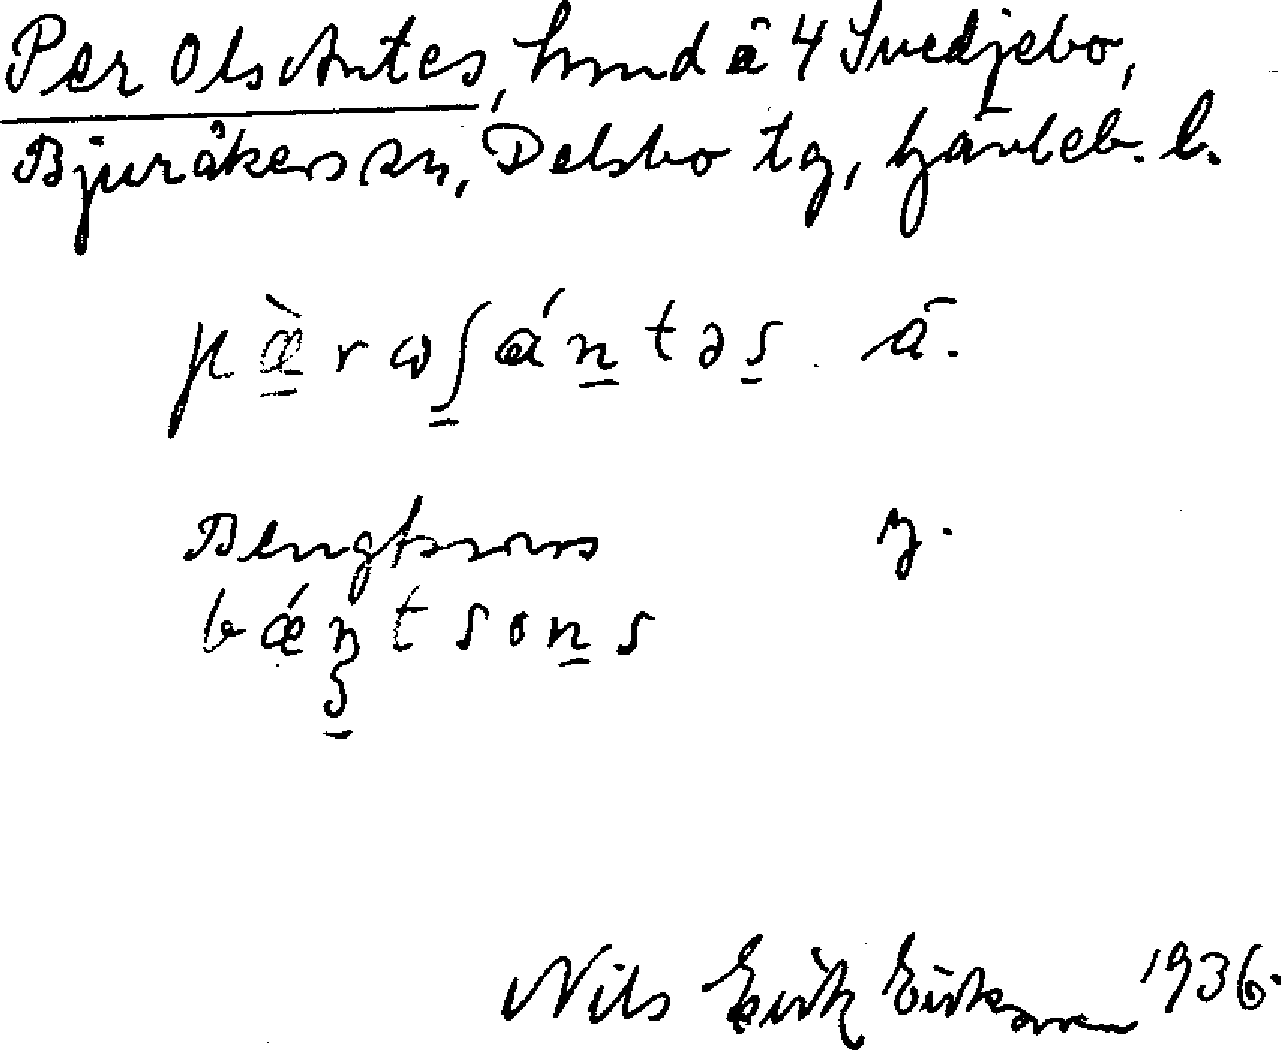 Per Ols Antes, hmd å 4 Svedjebo,
Bjuråkers sn, Delsbo tg, Gävleb. l.
pæ̀rωʃántəs. ä.
Bengtsons y.
bǽŋtsons
Nils Erik Eriksson 1936.